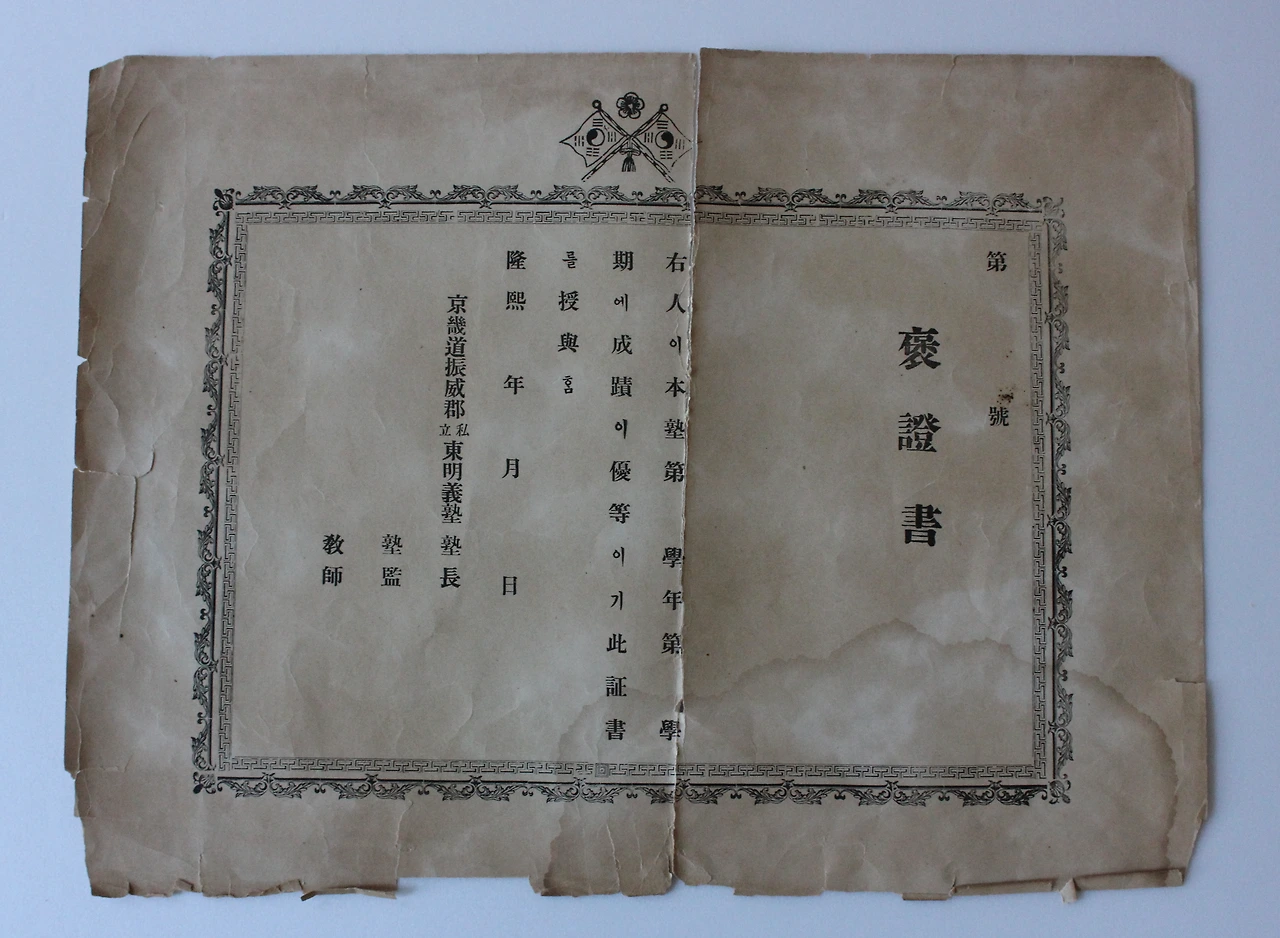 第 號
褒證書
右人이本塾第 學年第 學
期에成蹟이優等이기此証書
를授與홈
隆熙 年 月 日
京畿道振威郡私立東明義塾 塾長
塾監
敎師